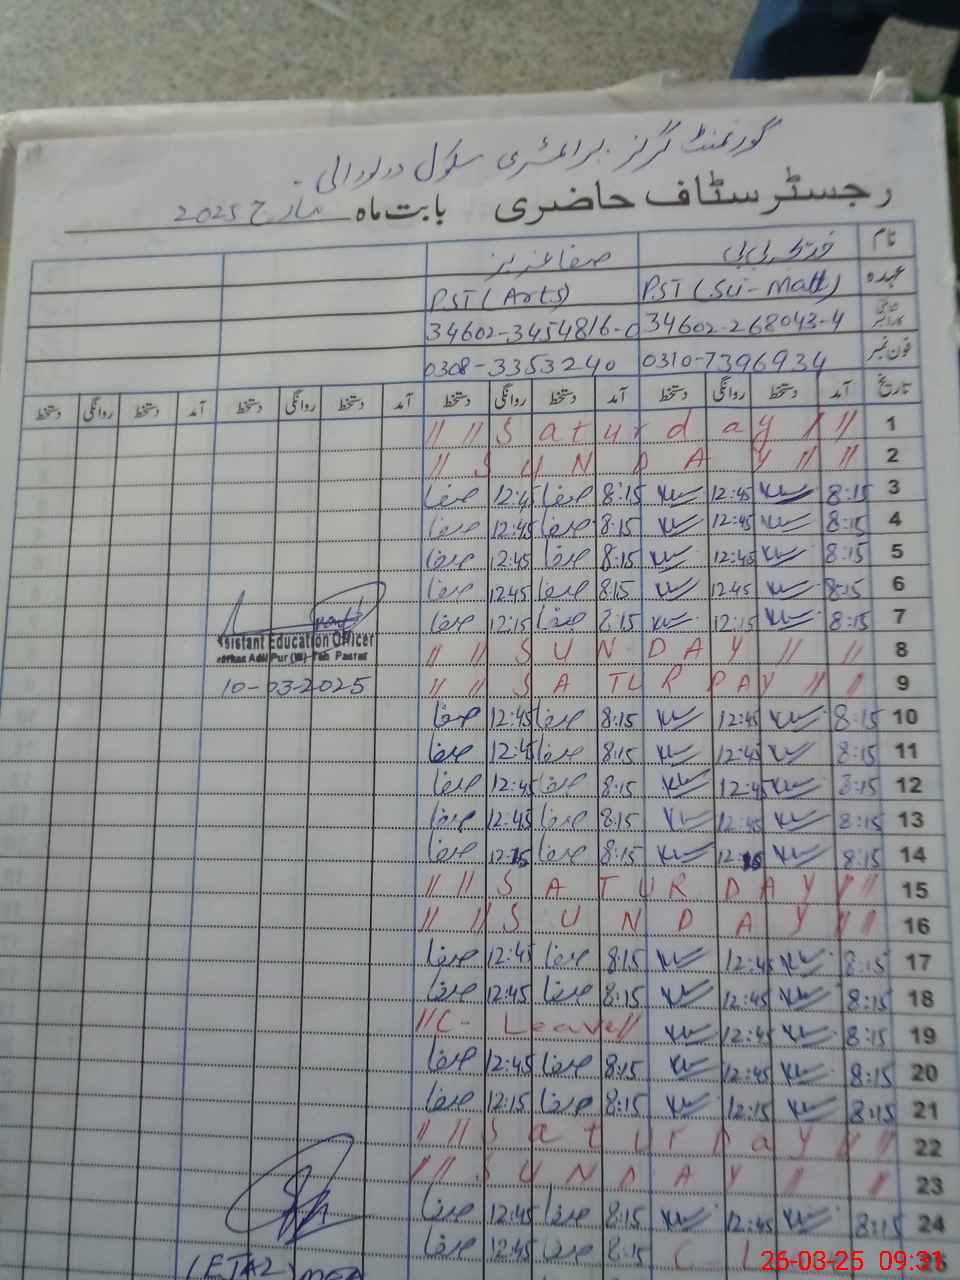 گورنمنٹ گرلز پرائمری سکول
رجسٹر سٹاف حاضری بابت ماہ مارچ 2025
نام صفا عزیز
عہدہ PST (Sci-Math) PST (Arts)
34602-268043-4 34602-3454816-0
فون نمبر 0310-7396934 0308-3353240
تاریخ آمد دستخط روانگی دستخط آمد دستخط روانگی دستخط آمد دستخط روانگی دستخط آمد دستخط روانگی دستخط
1 // // Saturday // //
2 // SUNDAY // //
3 8:15 12:45 8:15 صفا 12:45 صفا
4 8:15 12:45 8:15 صفا 12:45 صفا
5 8:15 12:45 8:15 صفا 12:45 صفا
6 8:15 12:45 8:15 صفا 12:45 صفا
7 8:15 12:15 8:15 صفا 12:15 صفا
8 // // SUNDAY // //
sistant Education Officer
9 // // SATURDAY // //
10-03-2025
10 8:15 12:45 8:15 صفا 12:45 صفا
11 8:15 12:45 8:15 صفا 12:45 صفا
12 8:15 12:45 8:15 صفا 12:45 صفا
13 8:15 12:45 8:15 صفا 12:45 صفا
14 8:15 12:15 8:15 صفا 12:15 صفا
15 // // SATURDAY // //
16 // // SUNDAY // //
17 8:15 12:45 8:15 صفا 12:45 صفا
18 8:15 12:45 8:15 صفا 12:45 صفا
19 8:15 12:45 // C-Leave //
20 8:15 12:45 8:15 صفا 12:45 صفا
21 8:15 12:15 8:15 صفا 12:15 صفا
22 // // Saturday // //
23 // // SUNDAY // //
24 8:15 12:45 8:15 صفا 12:45 صفا
C-L 8:15 صفا 12:45 صفا
26-03-25 09:31